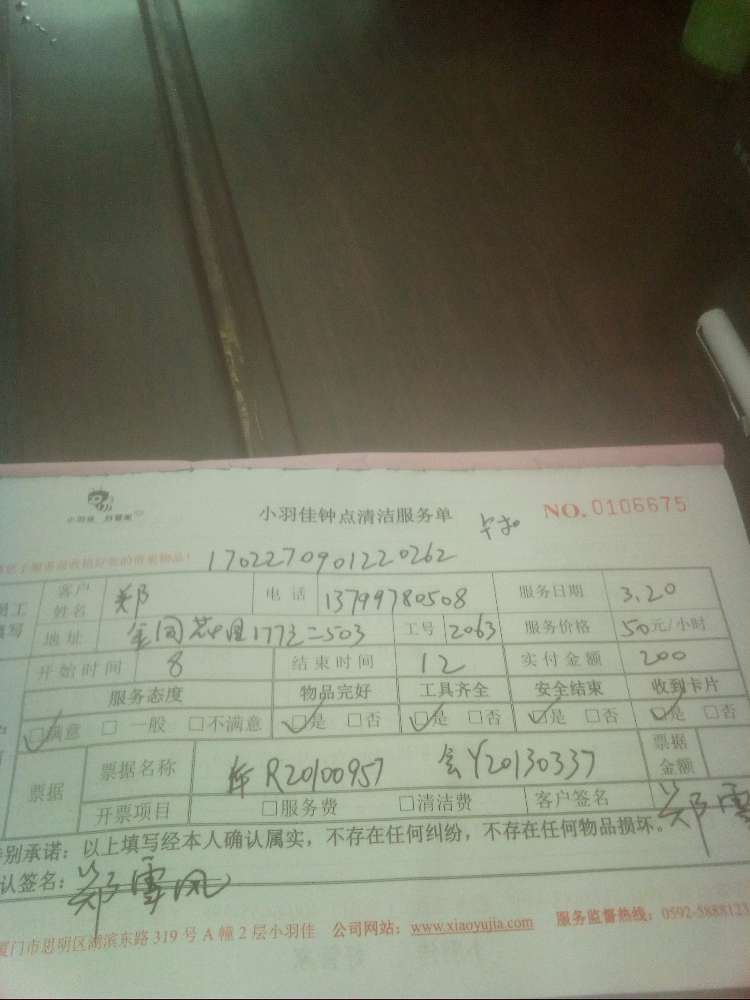 小羽佳 好管家
小羽佳钟点清洁服务单
NO. 0106675
1702270901220262
客户姓名 郑 电话 13799780508 服务日期 3.20
地址 173二503 工号 2063 服务价格 50元/小时
开始时间 8 结束时间 12 实付金额 200
服务态度 物品完好 工具齐全 安全结束 收到卡片
☑满意 □一般 □不满意 ☑是 □否 ☑是 □否 ☑是 □否 ☑是 □否
票据 票据名称 R20100957 会Y20130337 票据金额
开票项目 □服务费 □清洁费 客户签名 郑雪
特别承诺：以上填写经本人确认属实，不存在任何纠纷，不存在任何物品损坏。
认签名：郑雪风
厦门市思明区湖滨东路319号A幢2层小羽佳 公司网站：www.xiaoyujia.com 服务监督热线：0592-5888123